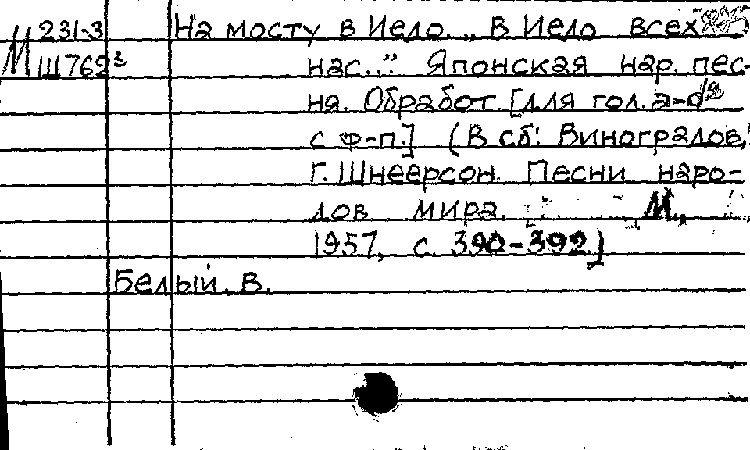 М 231-3 На мосту в Иедо. „В Иедо всех
Ш762² нас..." Японская нар. пес-
ня. Обработ. [для гол. a-d²
с ф-п.] (В сб: Виноградов,
Г. Шнеерсон. Песни наро-
дов мира. М.,
1957, с. 390-392)
Белый. В.